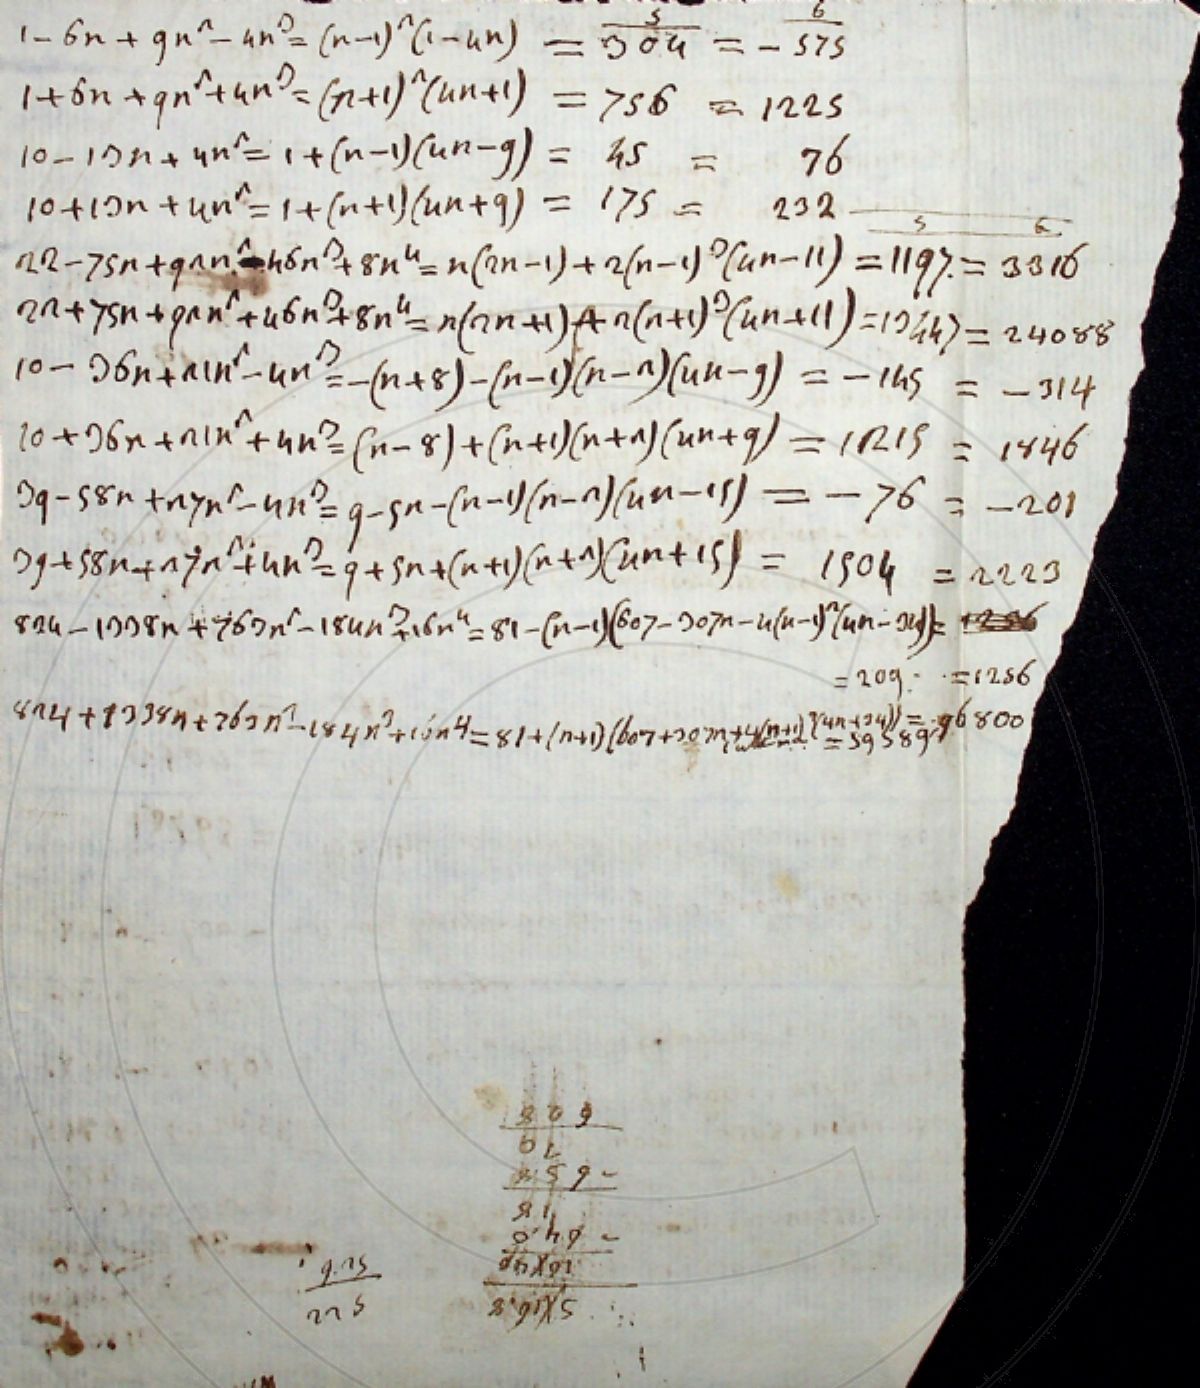 5 6
1-6n+9n²-4n³=(n-1)²(1-4n) = 304 = -575
1+6n+9n²+4n³=(n+1)²(4n+1) = 756 = 1225
10-13n+4n²=1+(n-1)(4n-9) = 45 = 76
10+13n+4n²=1+(n+1)(4n+9) = 175 = 232
5 6
22-75n+92n²-46n³+8n⁴=n(2n-1)+2(n-1)³(4n-11) =1197.= 3316
22+75n+92n²+46n³+8n⁴=n(2n+1)+2(n+1)³(4n+11)=13447=24088
10-36n+21n²-4n³=-(n+8)-(n-1)(n-2)(4n-9) = -145 = -314
10+36n+21n²+4n³=(n-8)+(n+1)(n+2)(4n+9) = 1215 = 1846
39-58n+27n²-4n³=9-5n-(n-1)(n-2)(4n-15) = -76 = -201
39+58n+27n²+4n³=9+5n+(n+1)(n+2)(4n+15) = 1504 = 2223
824-1338n+763n²-184n³+16n⁴=81-(n-1)(607-307n-4(n-1)²(4n-34))=
=209. =1256
824+1338n+763n²-184n³+16n⁴=81+(n+1)(607+307n+4(n+1)²(4n+34)) = 96800
= 59589